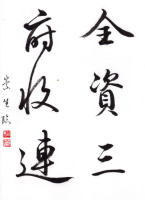 全資三
府收連